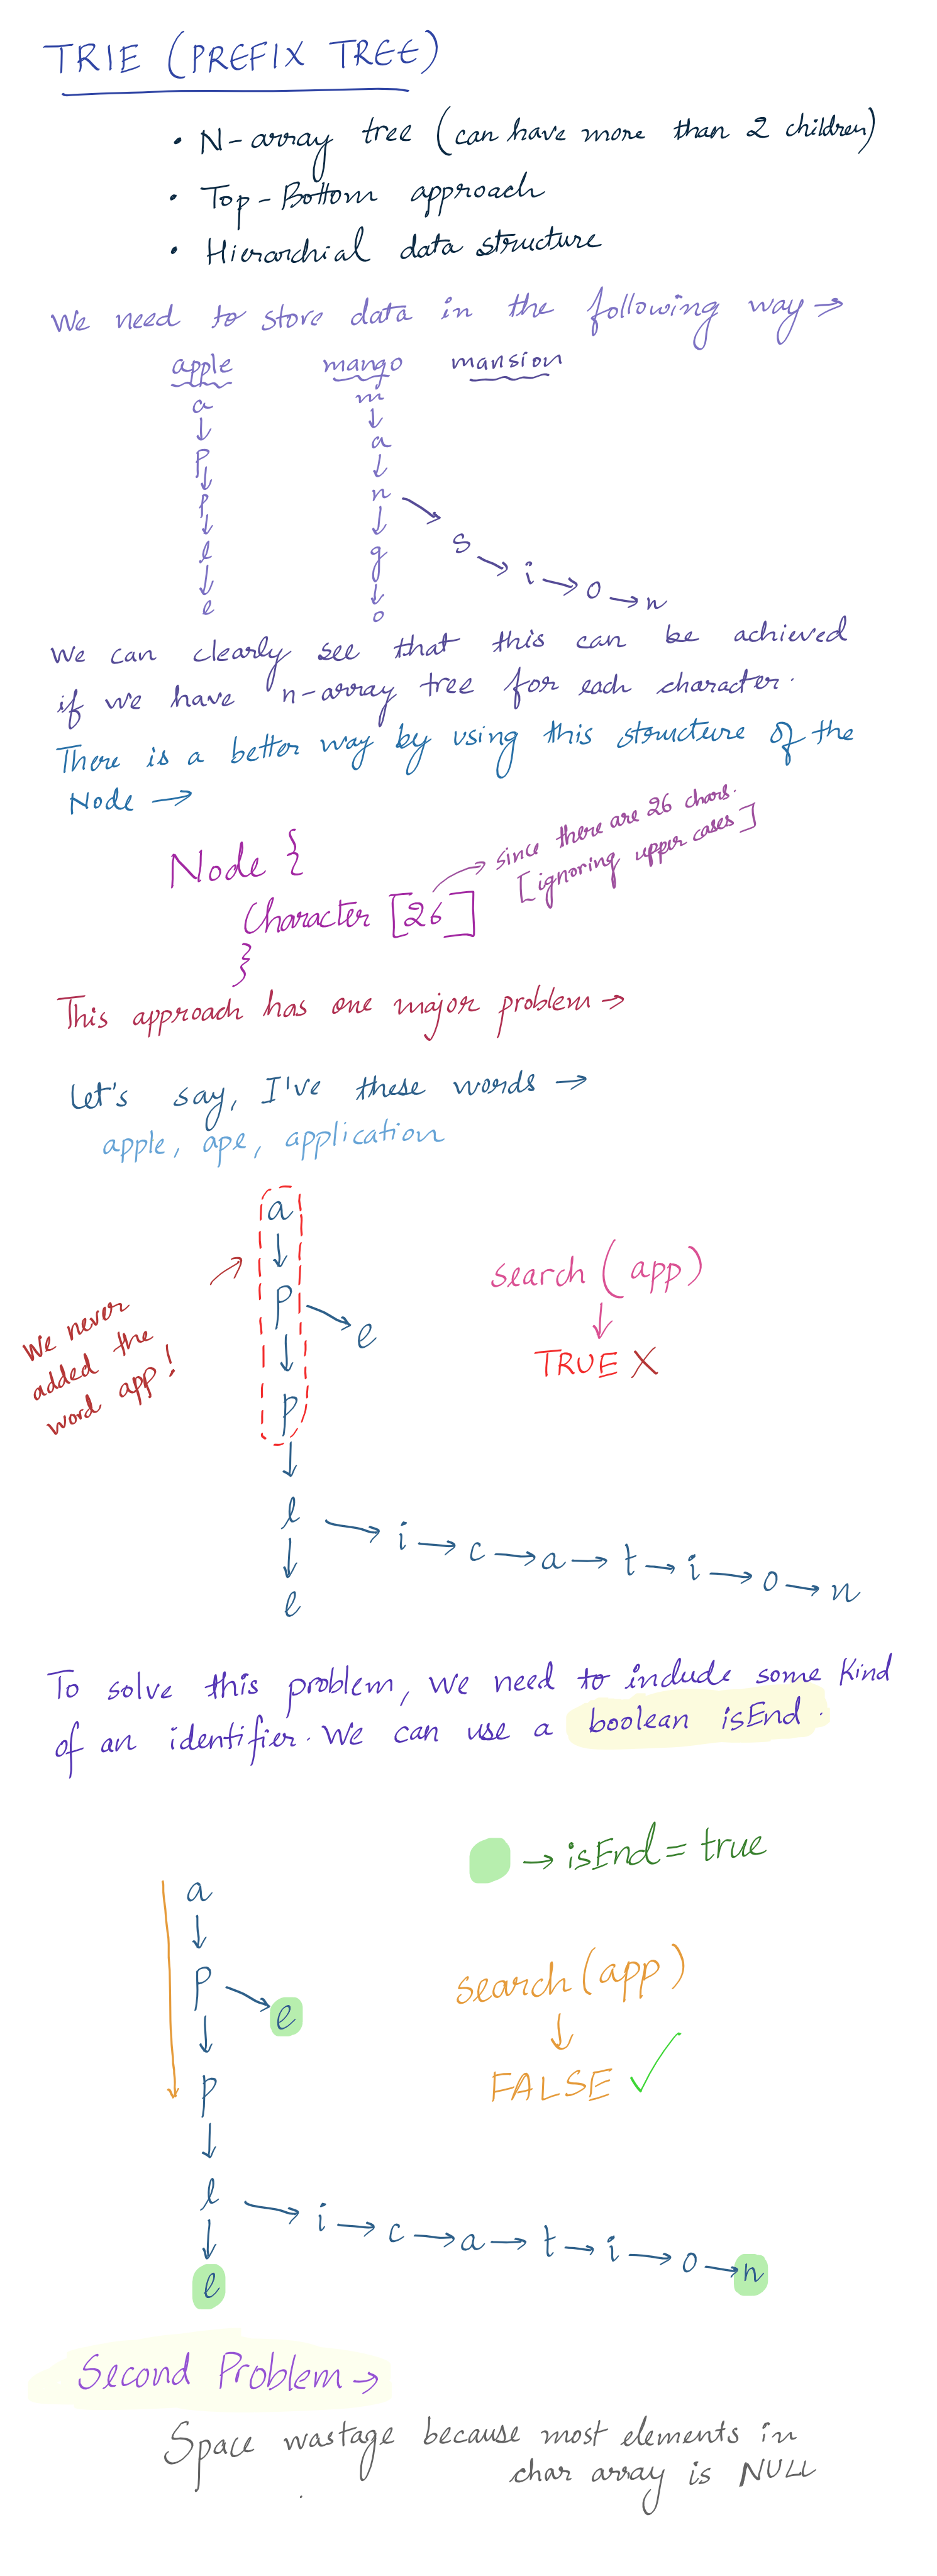 TRIE (PREFIX TREE)
• N-array tree (can have more than 2 children)
• Top-Bottom approach
• Hierarchial data structure
We need to store data in the following way →
apple mango mansion
a m
↓ ↓
p a
↓ ↓
p n → s → i → o → n
↓ ↓
l g
↓ ↓
e o
We can clearly see that this can be achieved
if we have n-array tree for each character.
There is a better way by using this structure of the
Node →
Node {
Character [26] → since there are 26 chars.
[ignoring upper cases]
}
This approach has one major problem →
Let's say, I've these words →
apple, ape, application
a
↓
p → e
↓
p
↓
l → i → c → a → t → i → o → n
↓
e
We never
added the
word app!
search (app)
↓
TRUE X
To solve this problem, we need to include some kind
of an identifier. We can use a boolean isEnd.
→ isEnd = true
a
↓
p → e
↓
p
↓
l → i → c → a → t → i → o → n
↓
e
search (app)
↓
FALSE ✓
Second Problem →
Space wastage because most elements in
char array is NULL